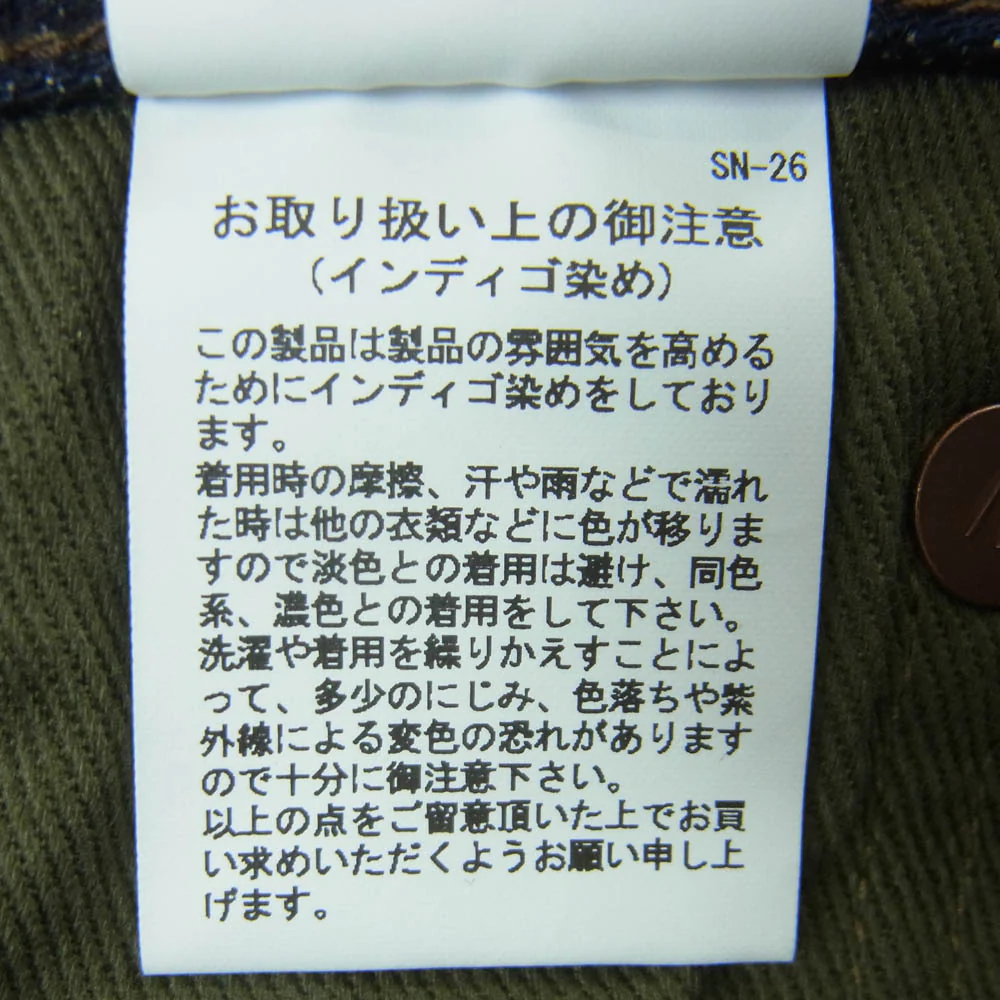 SN-26
お取り扱い上の御注意
(インディゴ染め)
この製品は製品の雰囲気を高める
ためにインディゴ染めをしており
ます。
着用時の摩擦、汗や雨などで濡れ
た時は他の衣類などに色が移りま
すので淡色との着用は避け、同色
系、濃色との着用をして下さい。
洗濯や着用を繰りかえすことによ
って、多少のにじみ、色落ちや紫
外線による変色の恐れがあります
ので十分に御注意下さい。
以上の点をご留意頂いた上でお買
い求めいただくようお願い申し上
げます。